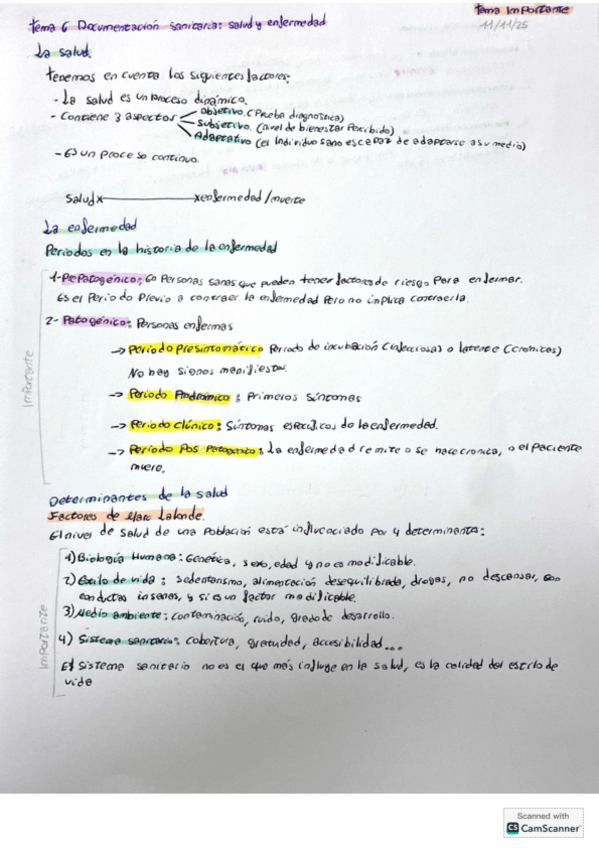 Tema Importante
11/11/25
Tema 6 Documentación sanitaria: salud y enfermedad
La salud.
Tenemos en cuenta los siguientes factores:
- La salud es un proceso dinámico.
- Contiene 3 aspectos
Objetivo. (Prueba diagnostica)
Subjetivo. (nivel de bienestar Percibido)
Adaptativo (el individuo sano es capaz de adaptarse a su medio)
- Es un proceso continuo.
Salud x x enfermedad / muerte
La enfermedad
Periodos en la historia de la enfermedad
Importante
1- Prepatogénico: Personas sanas que pueden tener factores de riesgo Para enfermar.
Es el Periodo Previo a contraer la enfermedad Pero no implica contraerla.
2- Patogénico: Personas enfermas
→ Periodo Presintomático Periodo de incubación (infecciosas) o latente (cronicas)
No hay signos manifiestos.
→ Periodo Prodrómico: Primeros Síntomas
→ Periodo Clínico: Síntomas específicos de la enfermedad.
→ Periodo Pos Patogenico: La enfermedad remite o se hace cronica, o el paciente
muere.
Determinantes de la salud
Factores de Marc Lalonde.
El nivel de Salud de una Población está influenciado por 4 determinantes:
Importante
1) Biología Humana: Genética, sexo, edad y no es modificable.
2) Estilo de vida: sedentarismo, alimentación desequilibrada, drogas, no descansar,
conductas insanas, y si es un factor modificable.
3) Medio ambiente: contaminación, ruido, grado de desarrollo.
4) Sistema sanitario: cobertura, gratuidad, accesibilidad...
El sistema sanitario no es el que más influye en la salud, es la calidad del estilo de
vida
Scanned with
CS CamScanner